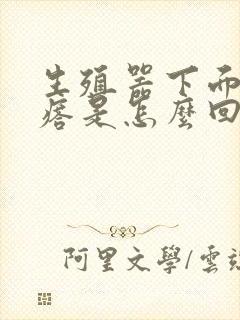 生殖器下面
痞是怎麼回
阿里文學/雲